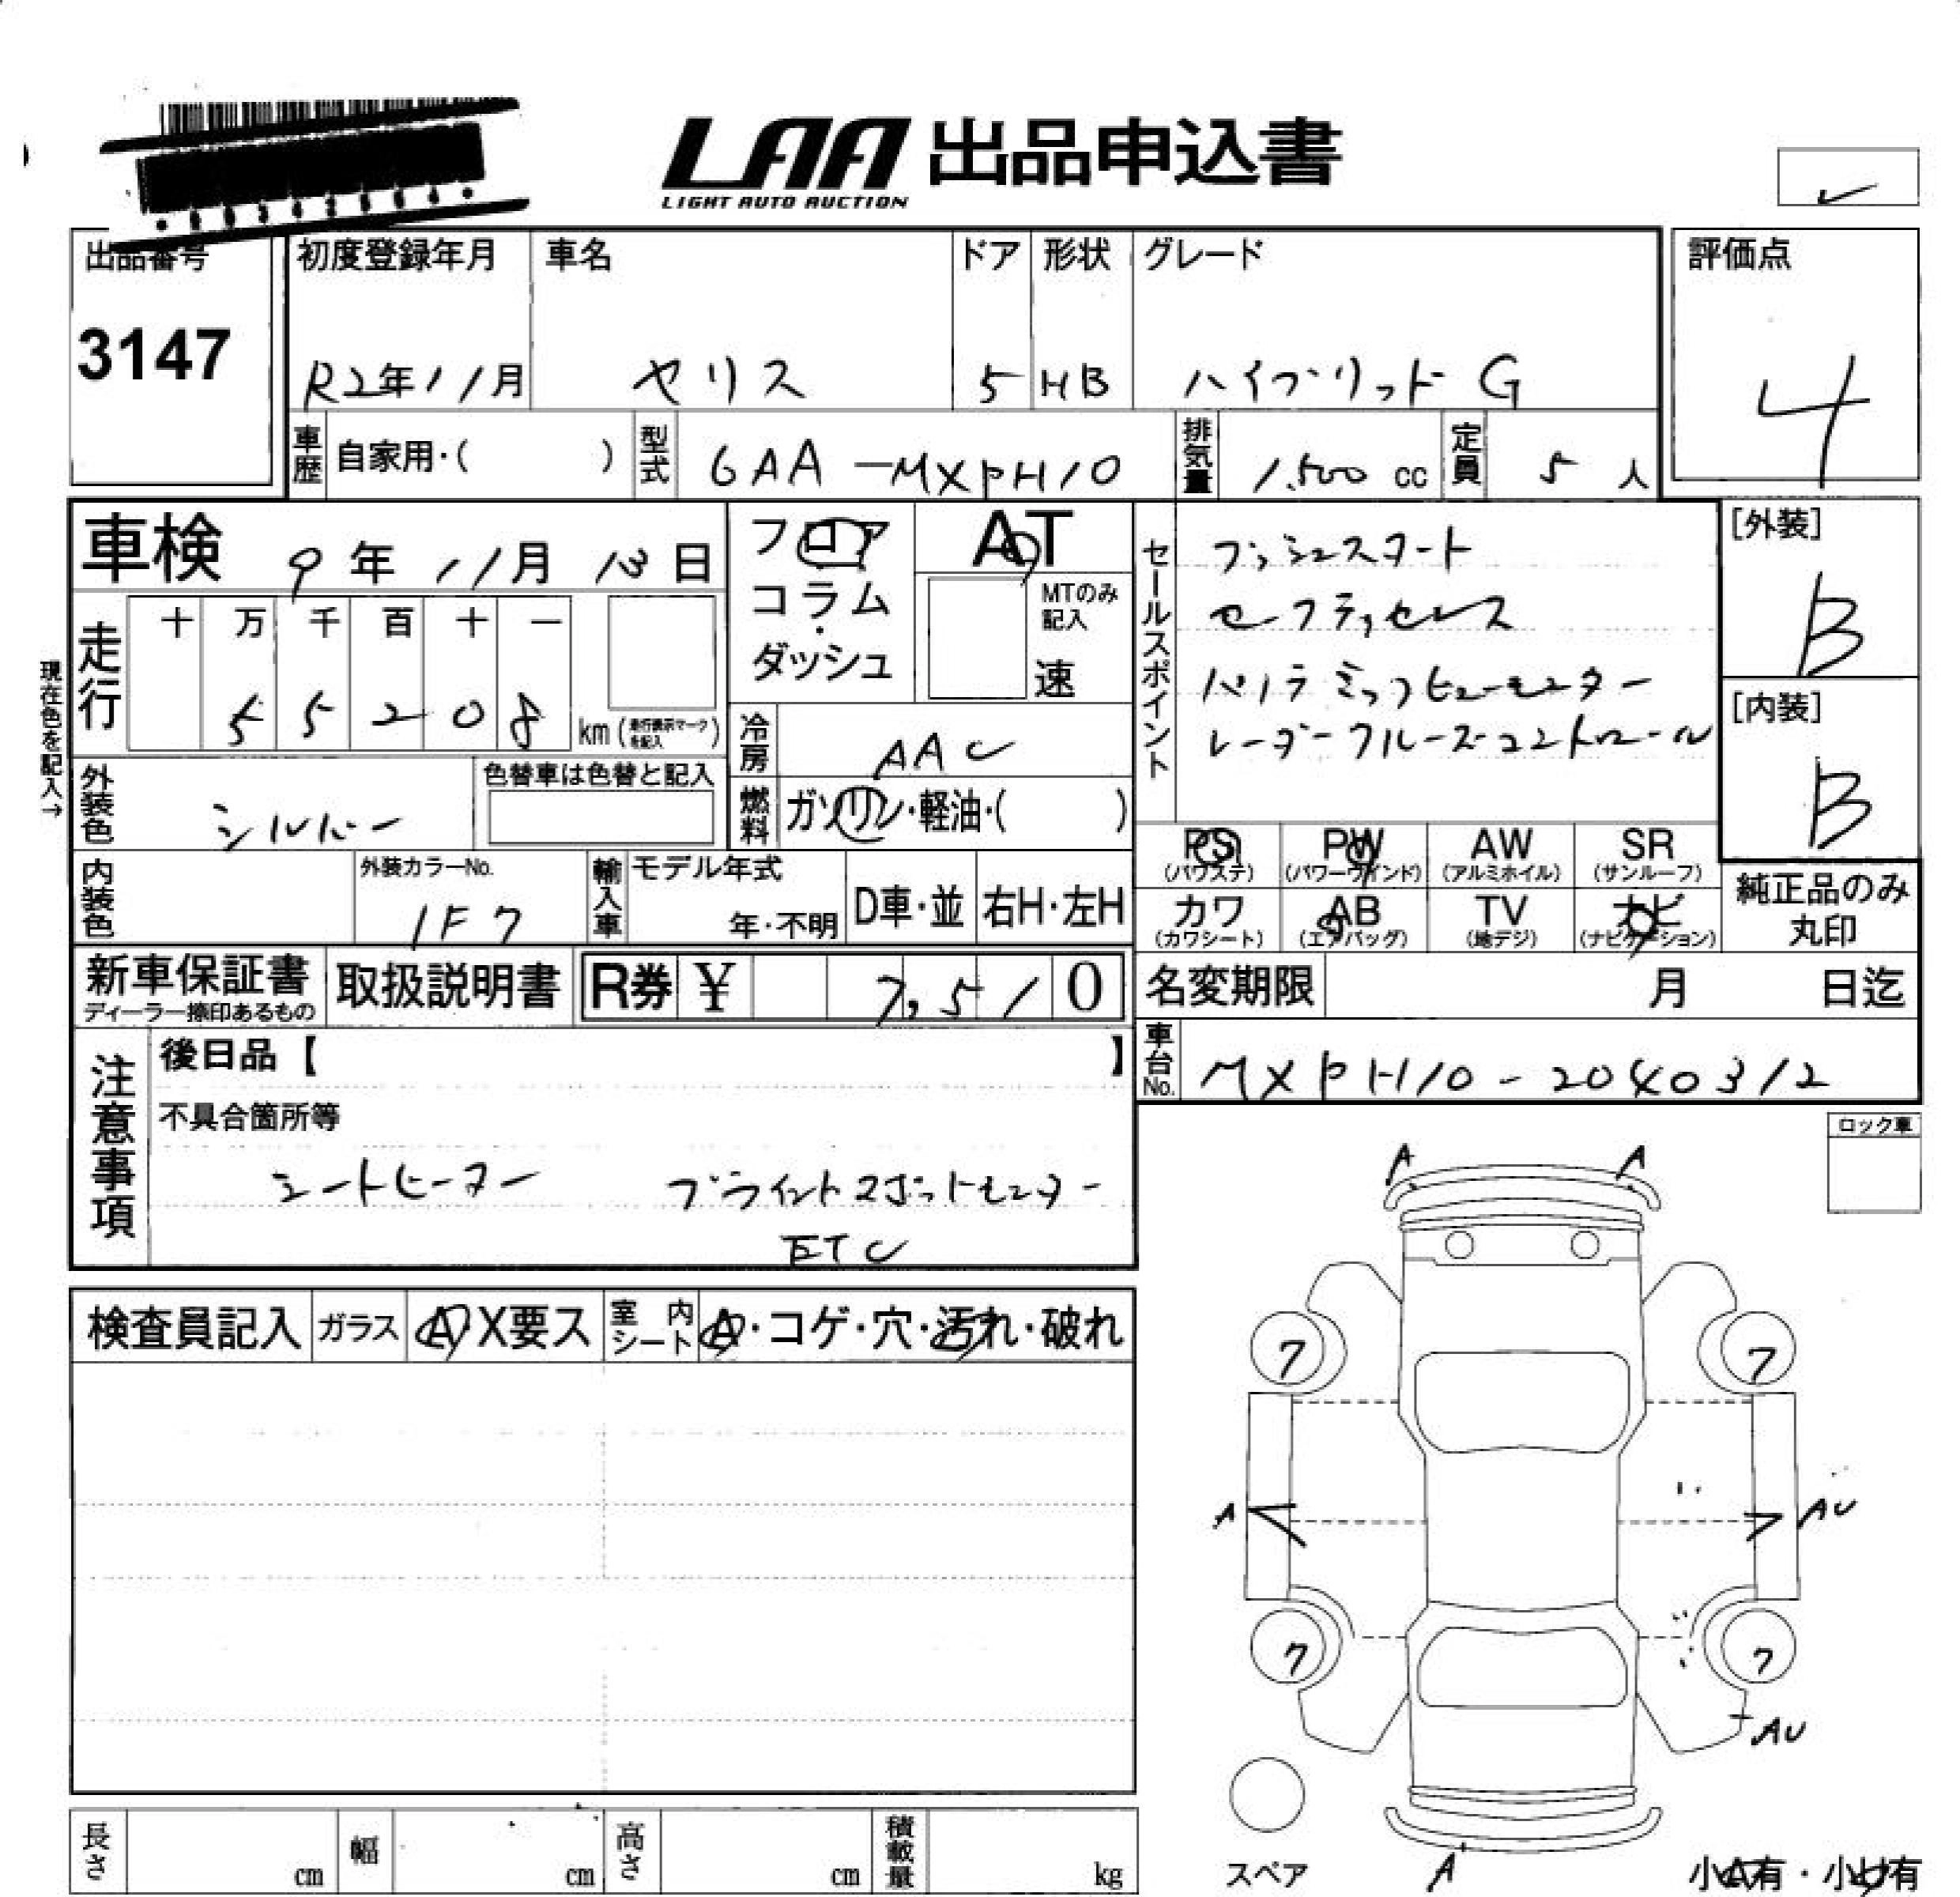 LAA 出品申込書
LIGHT AUTO AUCTION
出品番号 初度登録年月 車名 ドア 形状 グレード 評価点
3147 R2年11月 ヤリス 5 HB ハイブリッド G 4
車歴 自家用・( ) 型式 6AA-MXPH10 排気量 1.500 cc 定員 5 人
車検 9年 11月 13日 フロア AT
コラム・ MTのみ記入
ダッシュ 速
セールスポイント
プッシュスタート
セーフティセンス
パノラミックビューモニター
レーダークルーズコントロール
[外装]
B
[内装]
B
現在色を記入→
走行 十 万 千 百 十 一
5 5 2 0 8 km (走行表示マークを記入)
冷房 AAC
外装色 シルバー 色替車は色替と記入 燃料 ガソリン・軽油・( )
PS PW AW SR
(パワステ) (パワーウインド) (アルミホイル) (サンルーフ)
カワ AB TV ナビ
(カワシート) (エアバッグ) (地デジ) (ナビゲーション)
純正品のみ
丸印
内装色 外装カラーNo. 輸入車 モデル年式
1F7 年・不明 D車・並 右H・左H
新車保証書 取扱説明書 R券 ¥ 7,510 名変期限 月 日迄
ディーラー捺印あるもの
注意事項 後日品【 】 車台No. MXPH10-2040312
不具合箇所等
シートヒーター ブラインドスポットモニター
ETC
ロック車
検査員記入 ガラス A・X要ス 室内シート A・コゲ・穴・汚れ・破れ
A A
7 7
A AU
7 7
AU
A
スペア 小A有・小U有
長さ cm 幅 cm 高さ cm 積載量 kg